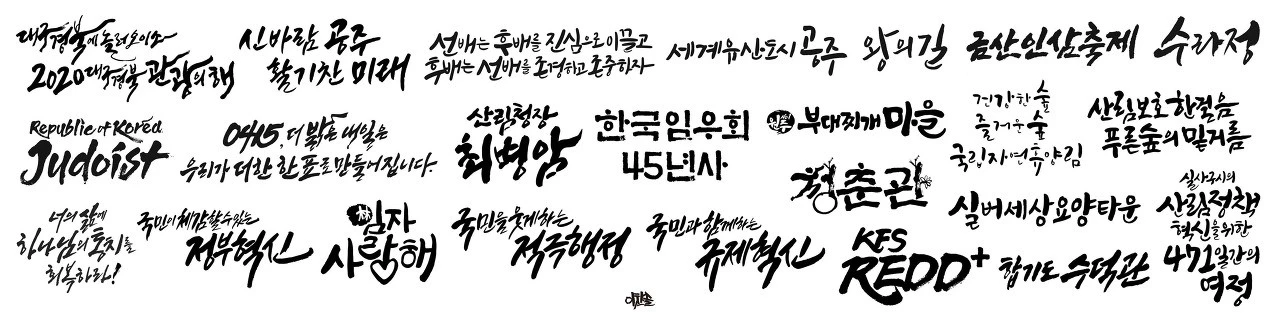 대구경북에 놀러오이소
2020 대구경북 관광의 해
신바람 공주
활기찬 미래
선배는 후배를 진심으로 이끌고
후배는 선배를 존경하고 존중하자
세계유산도시 공주
왕의 길
금산인삼축제
수라정
Republic of Korea
Judoist
0415, 더 밝은 내일은
우리가 더한 한 표로 만들어집니다.
산림청장
최병암
한국임우회
45년사
부대찌개 마을
건강한 숲
즐거운 숲
국립자연휴양림
산림보호 한걸음
푸른숲의 밑거름
청춘관
실버세상요양타운
실사구시의
산림정책
혁신을 위한
471일간의
여정
너의 삶에
하나님의 통치를
회복하라!
국민이 체감할 수 있는
정부혁신
임자
사랑해
국민을 웃게하는
적극행정
국민과 함께하는
규제혁신
KFS
REDD+
합기도 수덕관